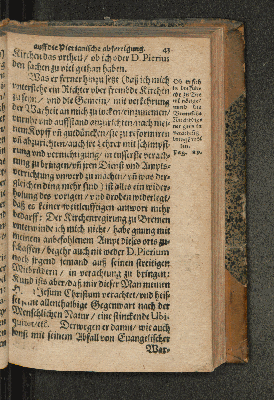 auff die Pierianische abfertigung. 43
Kirchen das vrtheil / ob ich oder D. Pierius
den sachen zu viel gethan haben.
Was er ferner hinzu setzt (daß ich mich
vnterstehe ein Richter vber frembde Kirchen
zu sein / vnd die Gemein / mit verfehrung
der Warheit an mich zu locken / einzunemen /
vnruhe vnd auffstand anzurichten / nach mei-
nem Kopff vñ gutdüncken / sie zu reformiren
vñ abzurichten / auch jre Lehrer mit schimpff-
rung vnd vernichtung / in entsetzte verach-
tung zu bringen / vñ jren Dienst vnd Ampts-
verrichtung vnwerd zu machen / vñ was der-
gleichen ding mehr sind) ist alles ein wider-
holung des vorigen / vnd droben widerlegt /
daß es keiner weitleufftigen antwort mehr
bedarff: Der Kirchenregirung zu Bremen
vnterwinde ich mich nicht / habe gnung mit
meinem anbefohlenem Ampt dieses orts zu
schaffen / begehr auch nit weder D. Pierium
noch jrgend jemand auß seinen streitigen
Mitbrüdern / in verachtung zu bringen:
Kund ists aber / daß mir dieser Man meinen
Jesum Christum verachtet / vnd heis-
set seine allenthalbige Gegenwart nach der
Menschlichen Natur / eine stinckende Vbi-
quitet / etc. Derwegen er damit / wie auch
sonst mit seinem Abfall von Euangelischer
War-
Ob ich sich
in
D.
Pag. 29.